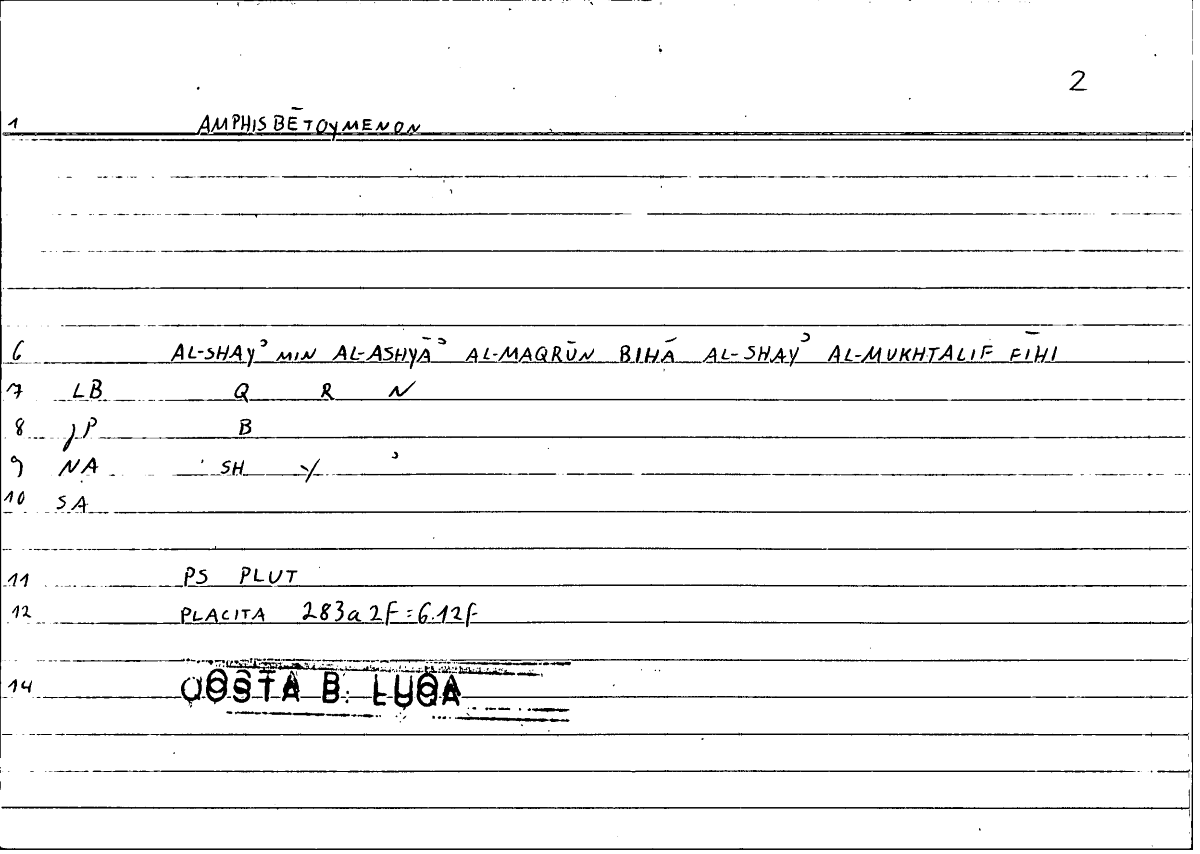 2
1 AMPHISBĒTOYMENON
6 AL-SHAYʾ MIN AL-ASHYĀʾ AL-MAQRŪN BIHĀ AL-SHAYʾ AL-MUKHTALIF FĪHI
7 LB Q R N
8 JP B
9 NA SH Y ʾ
10 SA
11 PS PLUT
12 PLACITA 283a2F=6.12F
14 QOSTA B. LUQA